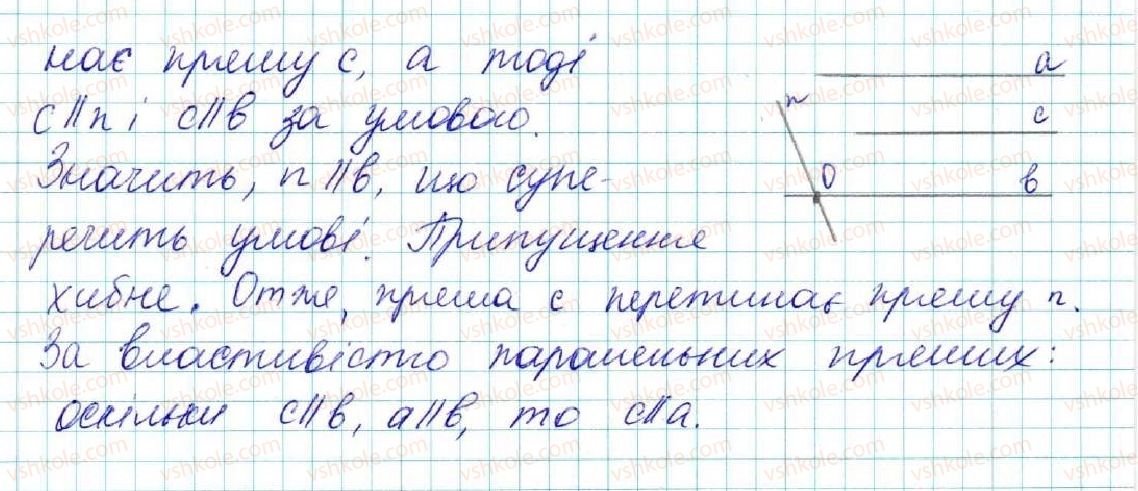 нає пряму c, а тоді
c∥n і c∥в за умовою.
Значить, n∥в, що супе-
речить умові. Припущення
хибне. Отже, пряма c перетинає пряму n.
За властивістю паралельних прямих:
оскільки c∥в, a∥в, то c∥a.
a
n
c
O
в
vshkole.com